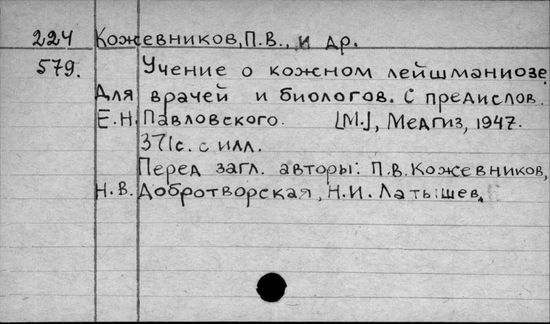 224 Кожевников, П.В., и др.
579. Учение о кожном лейшманиозе
для врачей и биологов. С предислов.
Е.Н. Павловского. [М.], Медгиз, 1947.
371с. с илл.
Перед загл. авторы: П.В. Кожевников,
Н.В. Добротворская, Н.И. Латышев.